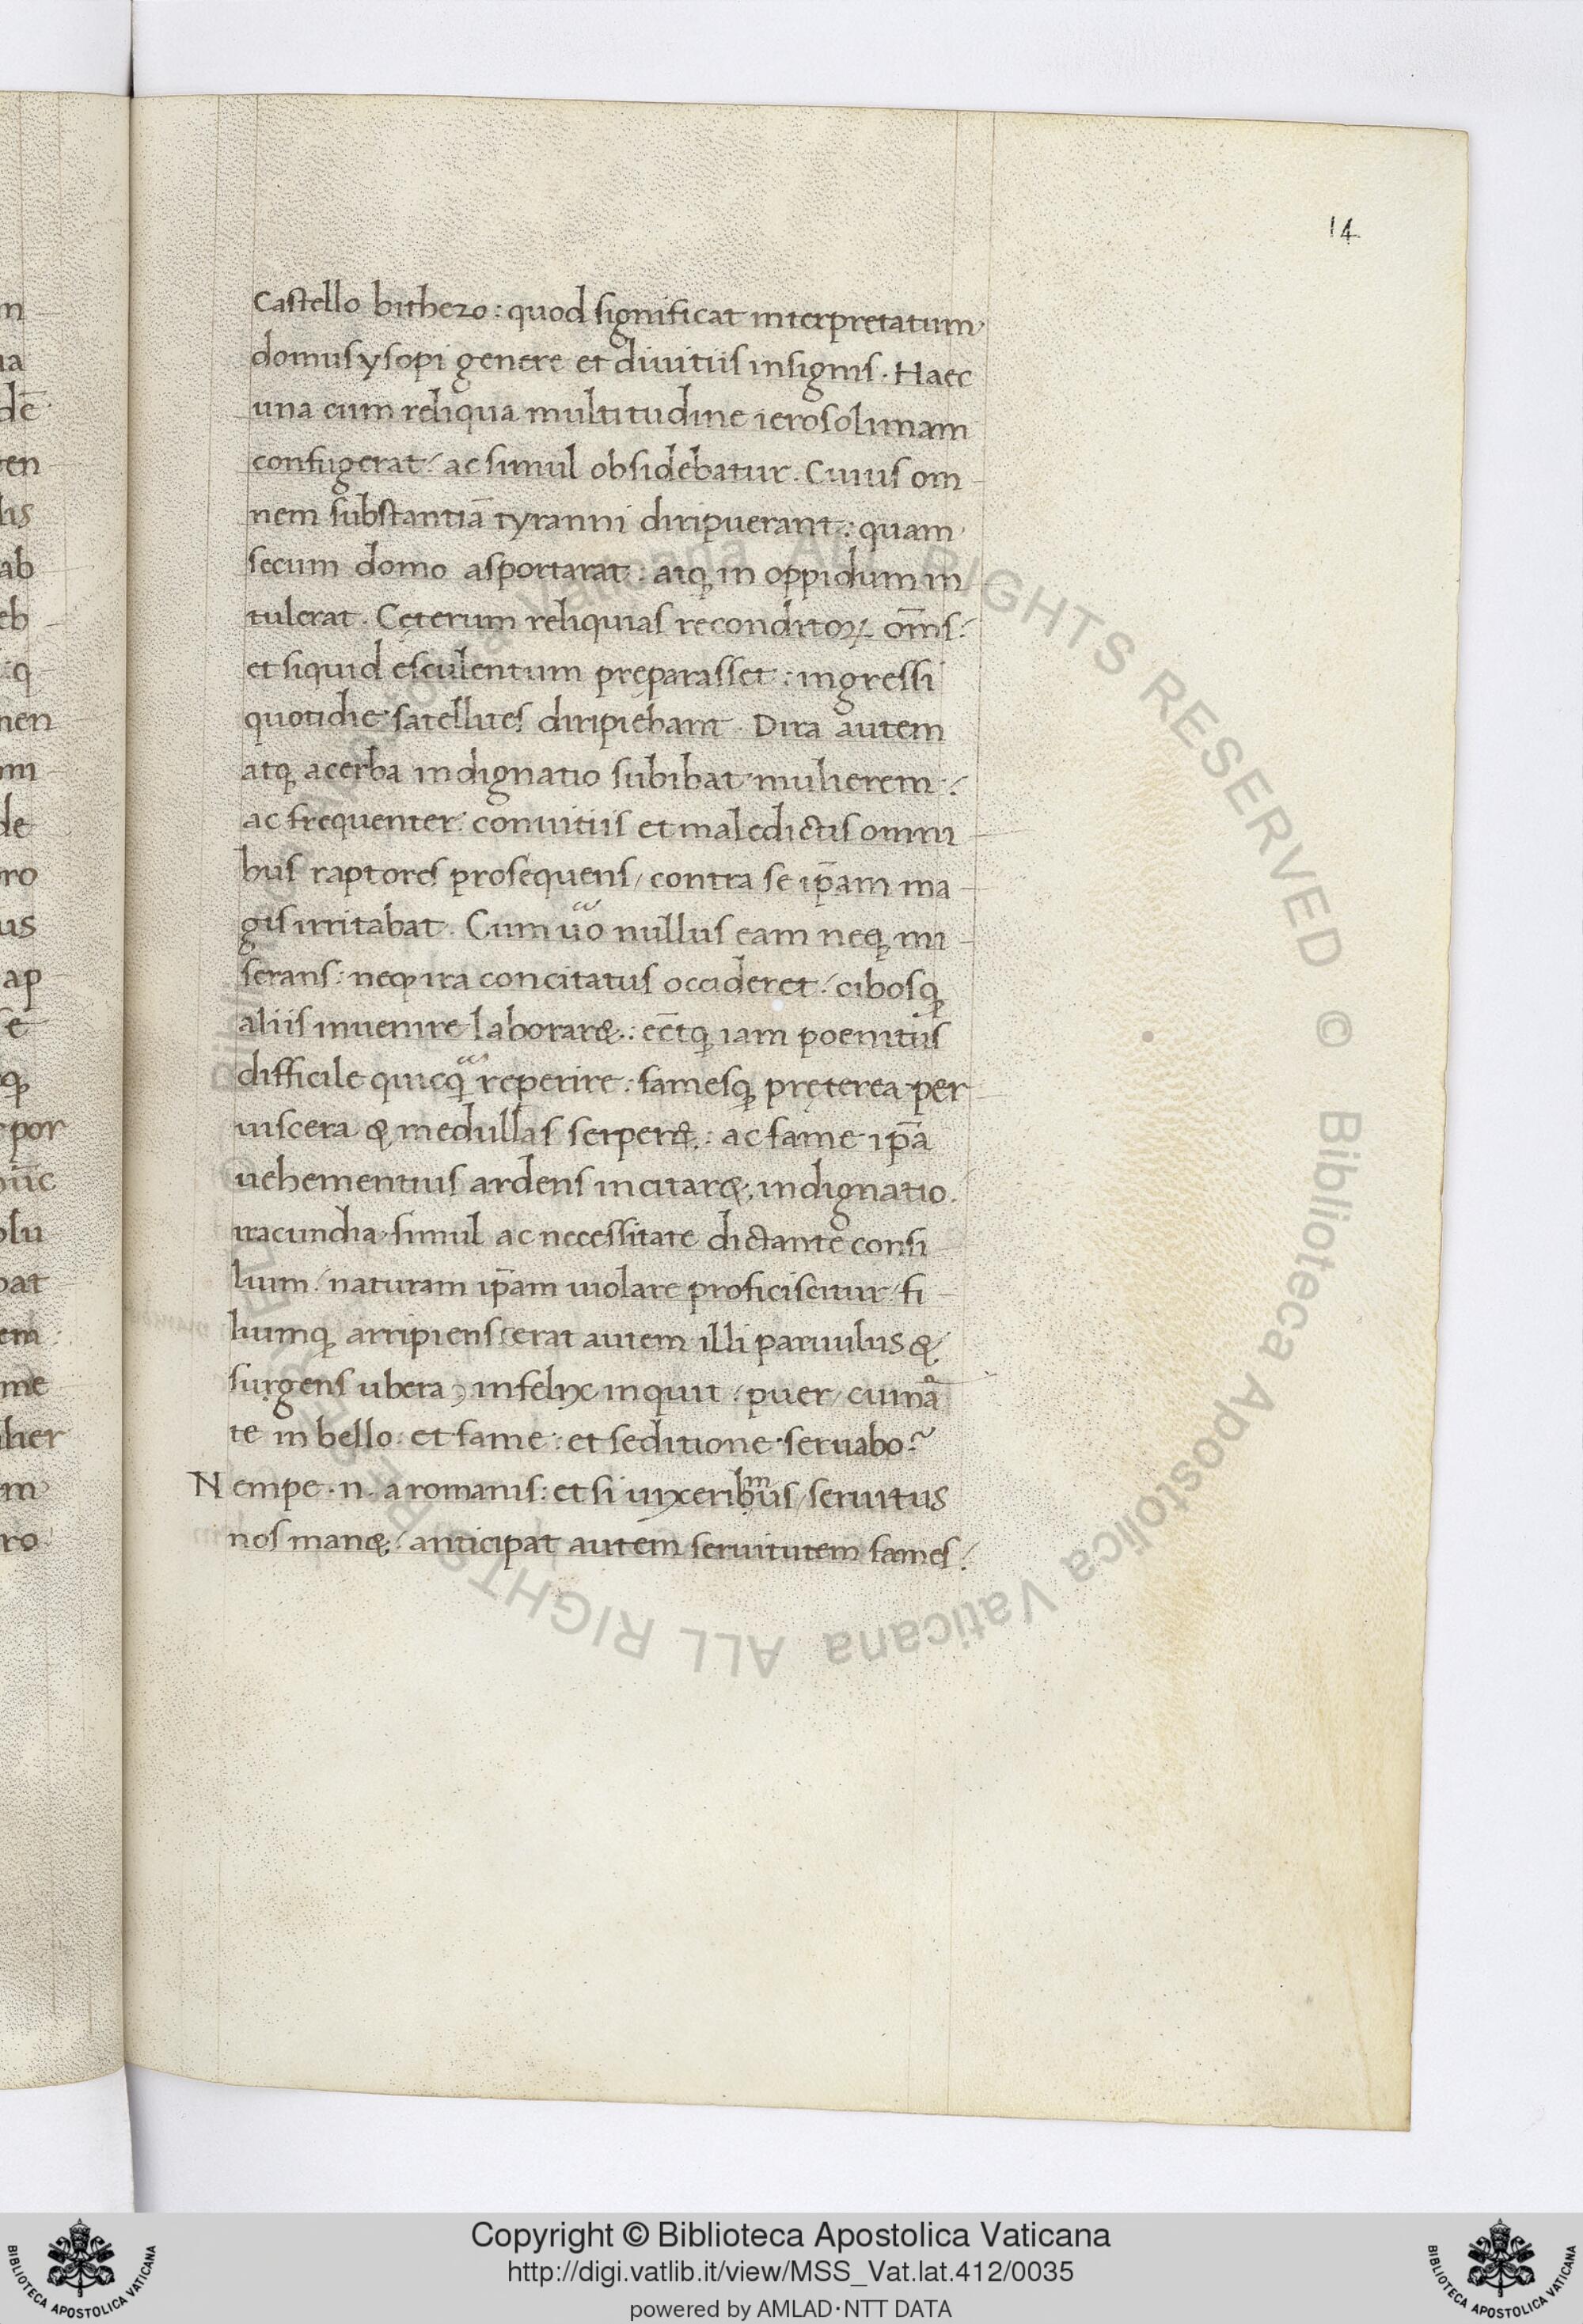 14
Castello bithezo: quod significat interpretatum
domus ysopi genere et diuitiis insignis. Haec
una cum reliqua multitudine ierosolimam
confugerat: ac simul obsidebatur. Cuius om
nem substantiā tyranni diripuerant: quam
secum domo asportarat: atq; in oppidum in
tulerat. Cęterum reliquias reconditoꝝ om̄s:
et siquid esculentum preparasset: ingressi
quotidie satellites diripiebant. Dira autem
atq; acerba indignatio subibat mulierem:
ac frequenter conuitiis et maledictis omni
bus raptores prosequens/ contra se ip̄am ma
gis irritabat. Cum uo nullus eam neq; mi
serans: neq; ira concitatus occideret: cibosq;
aliis inuenire laborar&: eēt q; iam poenitus
difficile quicq reperire: famesq; pręterea per
uiscera & medullas serper&: ac fame ip̄a
uehementius ardens incitar& indignatio.
iracundia simul ac necessitate dictante consi
lium/ naturam ip̄am uiolare proficiscitur: fi
liumq; arripiens: erat autem illi paruulus &
surgens ubera, infelyx inquit/ puer/ cui nā
te in bello: et fame: et seditione seruabo?
Nempe .n. a romanis: et si uyxeribm̄us/ seruitus
nos man&: anticipat autem seruitutem fames:
n
na
dē
ten
lis
ab
eb
q
nen
m
de
ro
us
ap
e
q;
por
lu
bat
em
me
lier
m
ro
Copyright © Biblioteca Apostolica Vaticana
http://digi.vatlib.it/view/MSS_Vat.lat.412/0035
powered by AMLAD·NTT DATA
BIBLIOTECA APOSTOLICA VATICANA
BIBLIOTECA APOSTOLICA VATICANA
© Biblioteca Apostolica Vaticana ALL RIGHTS RESERVED © Biblioteca Apostolica Vaticana ALL RIGHTS RESERVED